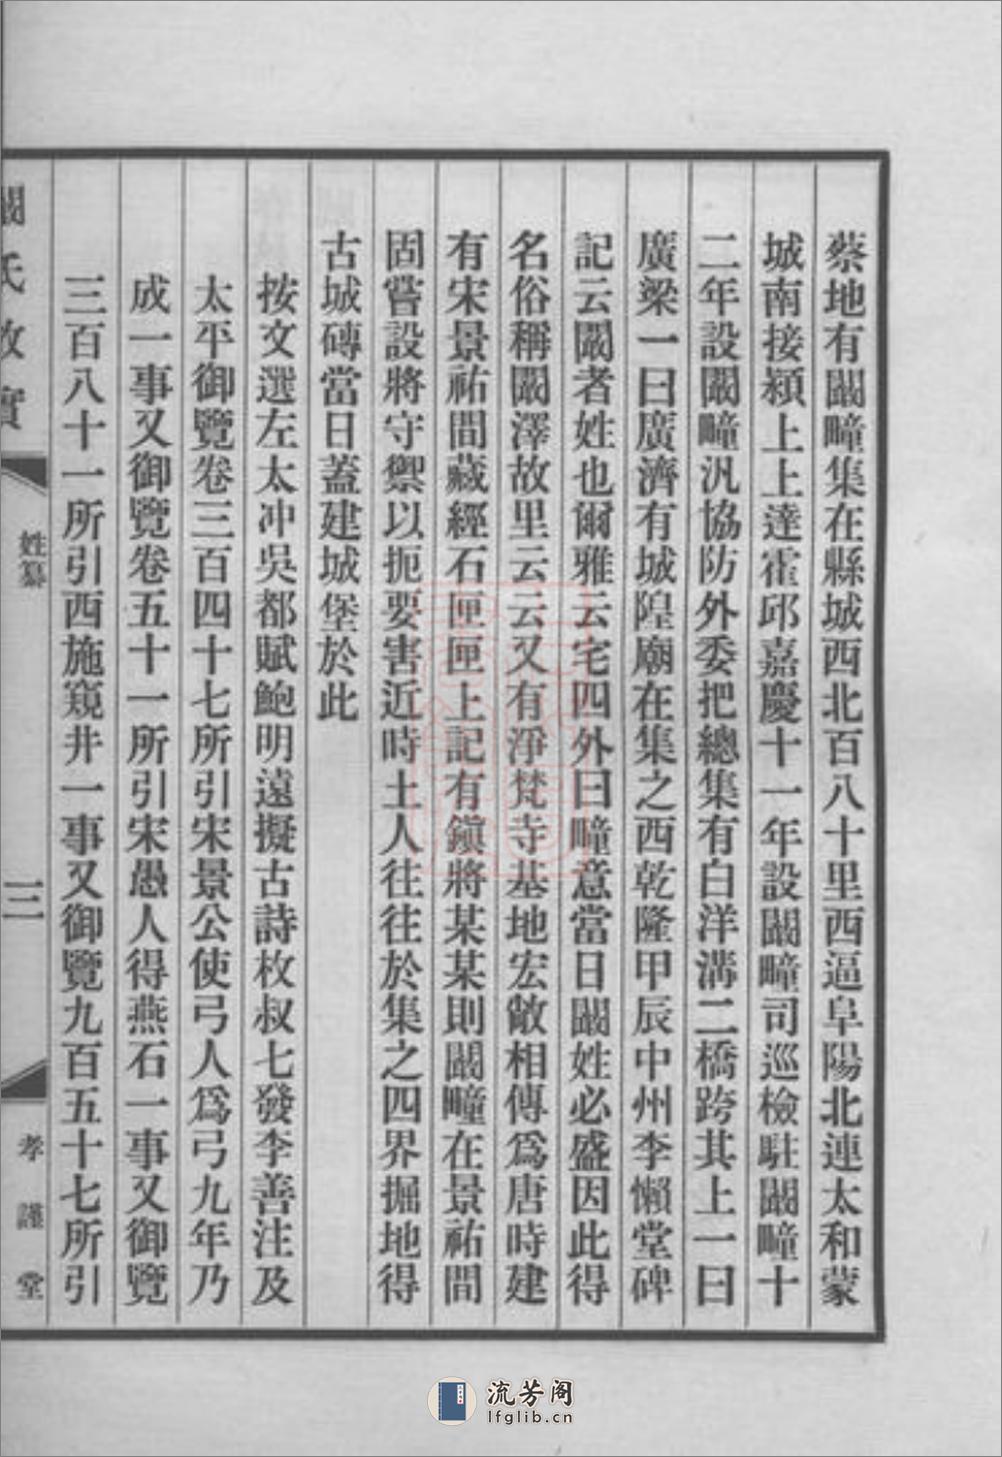 蔡地有闞疃集在縣城西北百八十里西逼阜陽北連太和蒙
城南接潁上上達霍邱嘉慶十一年設闞疃司巡檢駐闞疃十
二年設闞疃汛協防外委把總集有白洋溝二橋跨其上一曰
廣梁一曰廣濟有城隍廟在集之西乾隆甲辰中州李懶堂碑
記云闞者姓也爾雅云宅四外曰疃意當日闞姓必盛因此得
名俗稱闞澤故里云云又有淨梵寺基地宏敞相傳爲唐時建
有宋景祐間藏經石匣匣上記有鎭將某某則闞疃在景祐間
固嘗設將守禦以扼要害近時土人往往於集之四界掘地得
古城磚當日蓋建城堡於此
按文選左太冲吳都賦鮑明遠擬古詩枚叔七發李善注及
太平御覽卷三百四十七所引宋景公使弓人爲弓九年乃
成一事又御覽卷五十一所引宋愚人得燕石一事又御覽
三百八十一所引西施窺井一事又御覽九百五十七所引
闞氏攷實
姓纂
三
孝謹堂
流芳阁
lfglib.cn